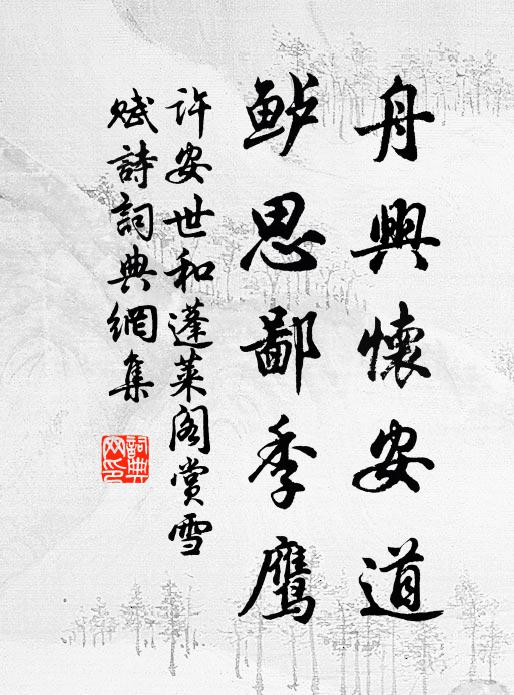 舟興懷安道
鲈思鄙季鹰
许安世和蓬莱阁赏雪
赋詩詞典網集
詞典网印